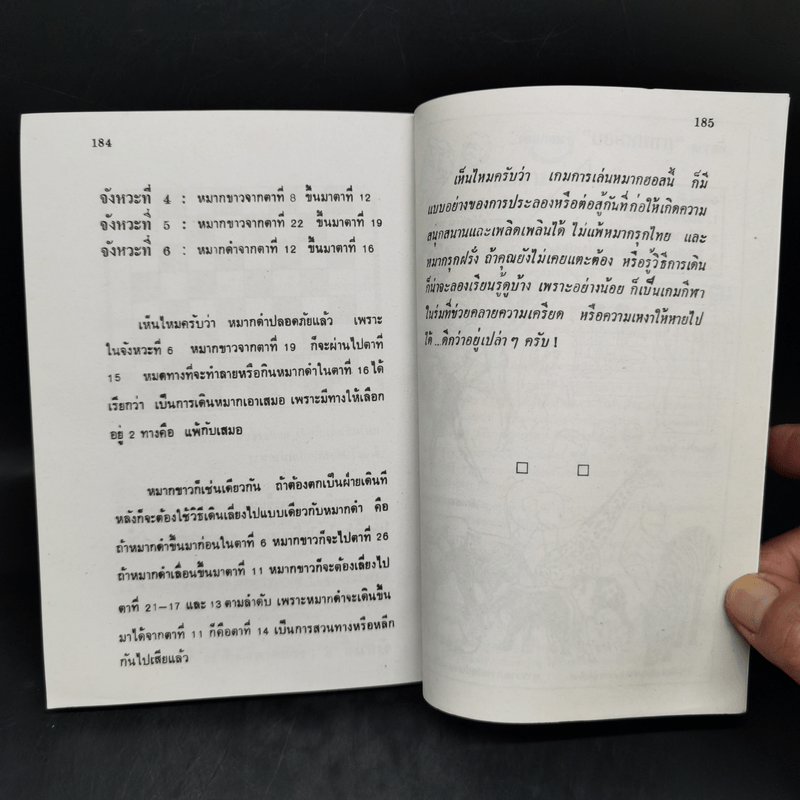 184
จังหวะที่ 4 : หมากขาวจากตาที่ 8 ขึ้นมาตาที่ 12
จังหวะที่ 5 : หมากขาวจากตาที่ 22 ขึ้นมาตาที่ 19
จังหวะที่ 6 : หมากดำจากตาที่ 12 ขึ้นมาตาที่ 16
เห็นไหมครับว่า หมากดำปลอดภัยแล้ว เพราะ
ในจังหวะที่ 6 หมากขาวจากตาที่ 19 ก็จะผ่านไปตาที่
15 หมดทางที่จะทำลายหรือกินหมากดำในตาที่ 16 ได้
เรียกว่า เป็นการเดินหมากเอาเสมอ เพราะมีทางให้เลือก
อยู่ 2 ทางคือ แพ้กับเสมอ
หมากขาวก็เช่นเดียวกัน ถ้าต้องตกเป็นฝ่ายเดินที
หลังก็จะต้องใช้วิธีเดินเลี่ยงไปแบบเดียวกับหมากดำ คือ
ถ้าหมากดำขึ้นมาก่อนในตาที่ 6 หมากขาวก็จะไปตาที่ 26
ถ้าหมากดำเลื่อนขึ้นมาตาที่ 11 หมากขาวก็จะต้องเลี่ยงไป
ตาที่ 21-17 และ 13 ตามลำดับ เพราะหมากดำจะเดินขึ้น
มาได้จากตาที่ 11 ก็คือตาที่ 14 เป็นการสวนทางหรือหลีก
กันไปเสียแล้ว
185
เห็นไหมครับว่า เกมการเล่นหมากฮอสนี้ ก็มี
แบบอย่างของการประลองหรือต่อสู้กันที่ก่อให้เกิดความ
สนุกสนานและเพลิดเพลินได้ ไม่แพ้หมากรุกไทย และ
หมากรุกฝรั่ง ถ้าคุณยังไม่เคยแตะต้อง หรือรู้วิธีการเดิน
ก็น่าจะลองเรียนรู้ดูบ้าง เพราะอย่างน้อย ก็เป็นเกมกีฬา
ในร่มที่ช่วยคลายความเครียด หรือความเหงาให้หายไป
ได้ ...ดีกว่าอยู่เปล่า ๆ ครับ !